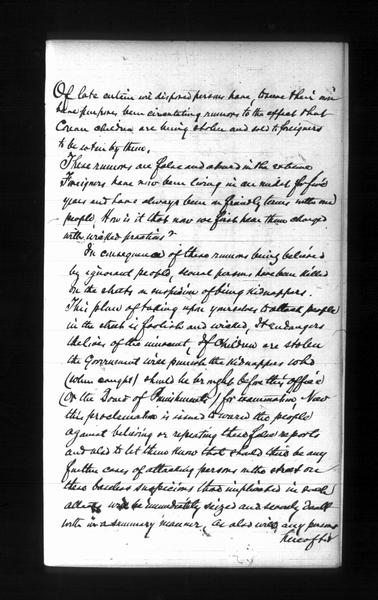 Of late certain evil disposed persons have, to serve their own
base purposes been circulating rumors to the effect that
Corean children are being stolen and sold to foreigners
to be eaten by them.
These rumors are false and absurd in the extreme
Foreigners have now been living in our midst for five
years and have always been on friendly terms with our
people. How is it that now we first hear them charged
with wicked practices?
In consequence of these rumors being believed
by ignorant people, several persons have been killed
on the streets on suspicion of being kidnappers.
This place of taking upon yourselves to attack people
in the streets is foolish and wicked, It endangers
the lives of the innocent. If Children are stolen
the Government will punish the kidnappers who
(when caught) should be brought before this office
(or the Board of Punishments) for examination Now
this proclamation is issued to warn the people
against believing or repeating these false reports
and also to let them know that should there be any
further cases of attacking persons in the street on
these baseless suspicions those implicated in such
attacks will be immediately seized and severely dealt
with in a summary manner. As also will any persons
hereafter